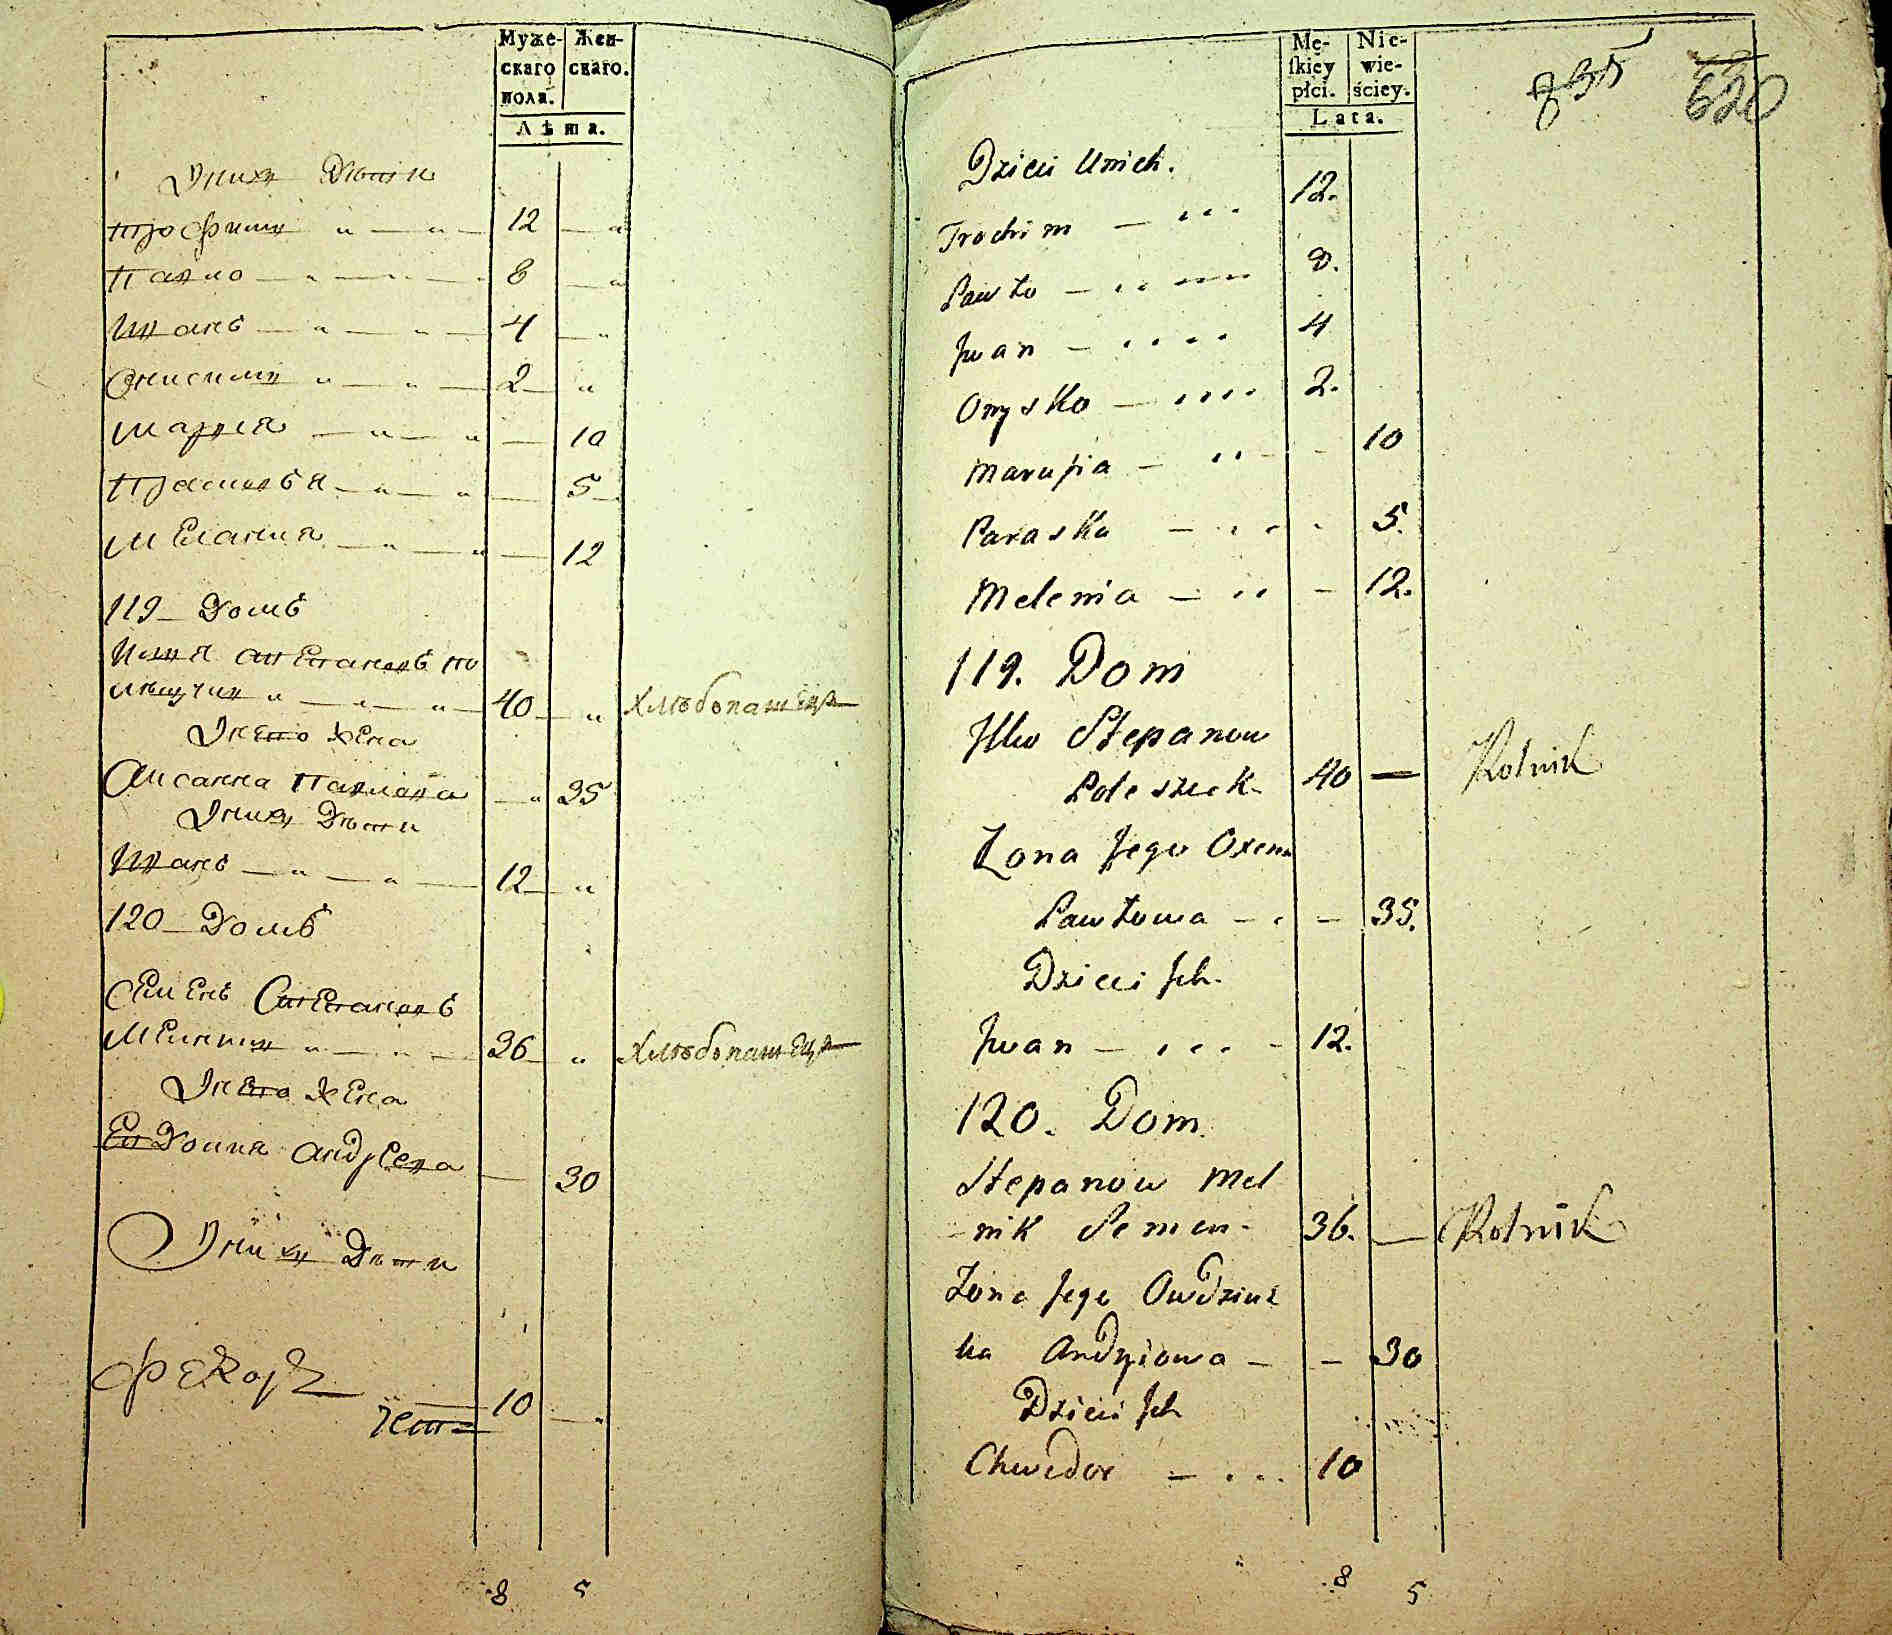 Муже-
скаго
пола.
Жен-
скаго.
Лѣта.
У нихъ Дѣти
Трофимъ 12
Павло 8
Иванъ 4
Онисимъ 2
Марья 10
Прасковья 5
Мелания 12
119 Домъ
Илья Степановъ По
лещукъ 40 Хлѣбопашецъ
У него Жена
Оксанна Павлова 35
У нихъ Дѣти
Иванъ 12
120 Домъ
Семенъ Степановъ
Мельникъ 36 Хлѣбопашецъ
У него Жена
Евдокия Андреева 30
У нихъ Дѣти
Федоръ 10
8 5
Mę-
skiey
płci.
Nie-
wie-
ściey.
Lata.
835
620
Dzieci Unich.
Trochim 12.
Pawło 8.
Jwan 4
Onysko 2.
Marusia 10
Paraska 5.
Melenia 12.
119. Dom
Jllio Stepanow
Poleszuk 40 Rolnik
Żona Jego Oxena
Pawłowa 35.
Dzieci Jch.
Jwan 12.
120. Dom
Stepanow Mel
nik Semen 36. Rolnik
Żona Jego Owdziusz
ka Andryiowa 30
Dzieci Jch
Chwedor 10
8 5